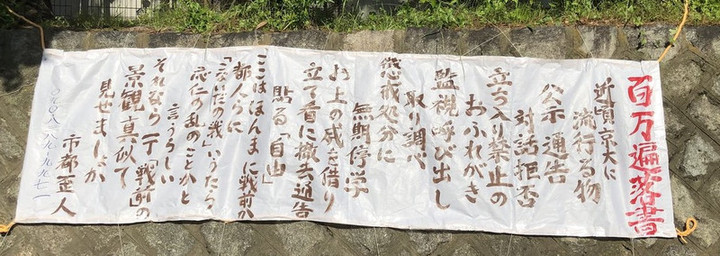 百万遍落書
近頃京大に
流行る物
公示通告
対話拒否
立ち入り禁止の
おふれがき
監視呼び出し
取り調べ
懲戒処分に
無期停学
お上の威を借り
立て看に撤去通告
貼る「自由」
ここはほんまに戦前か
都人らに
「こないだの戦」いうたら
応仁の乱のことかと
言うらしい
それなら一丁戦前の
景観真似て
見せましょか
市都歪人